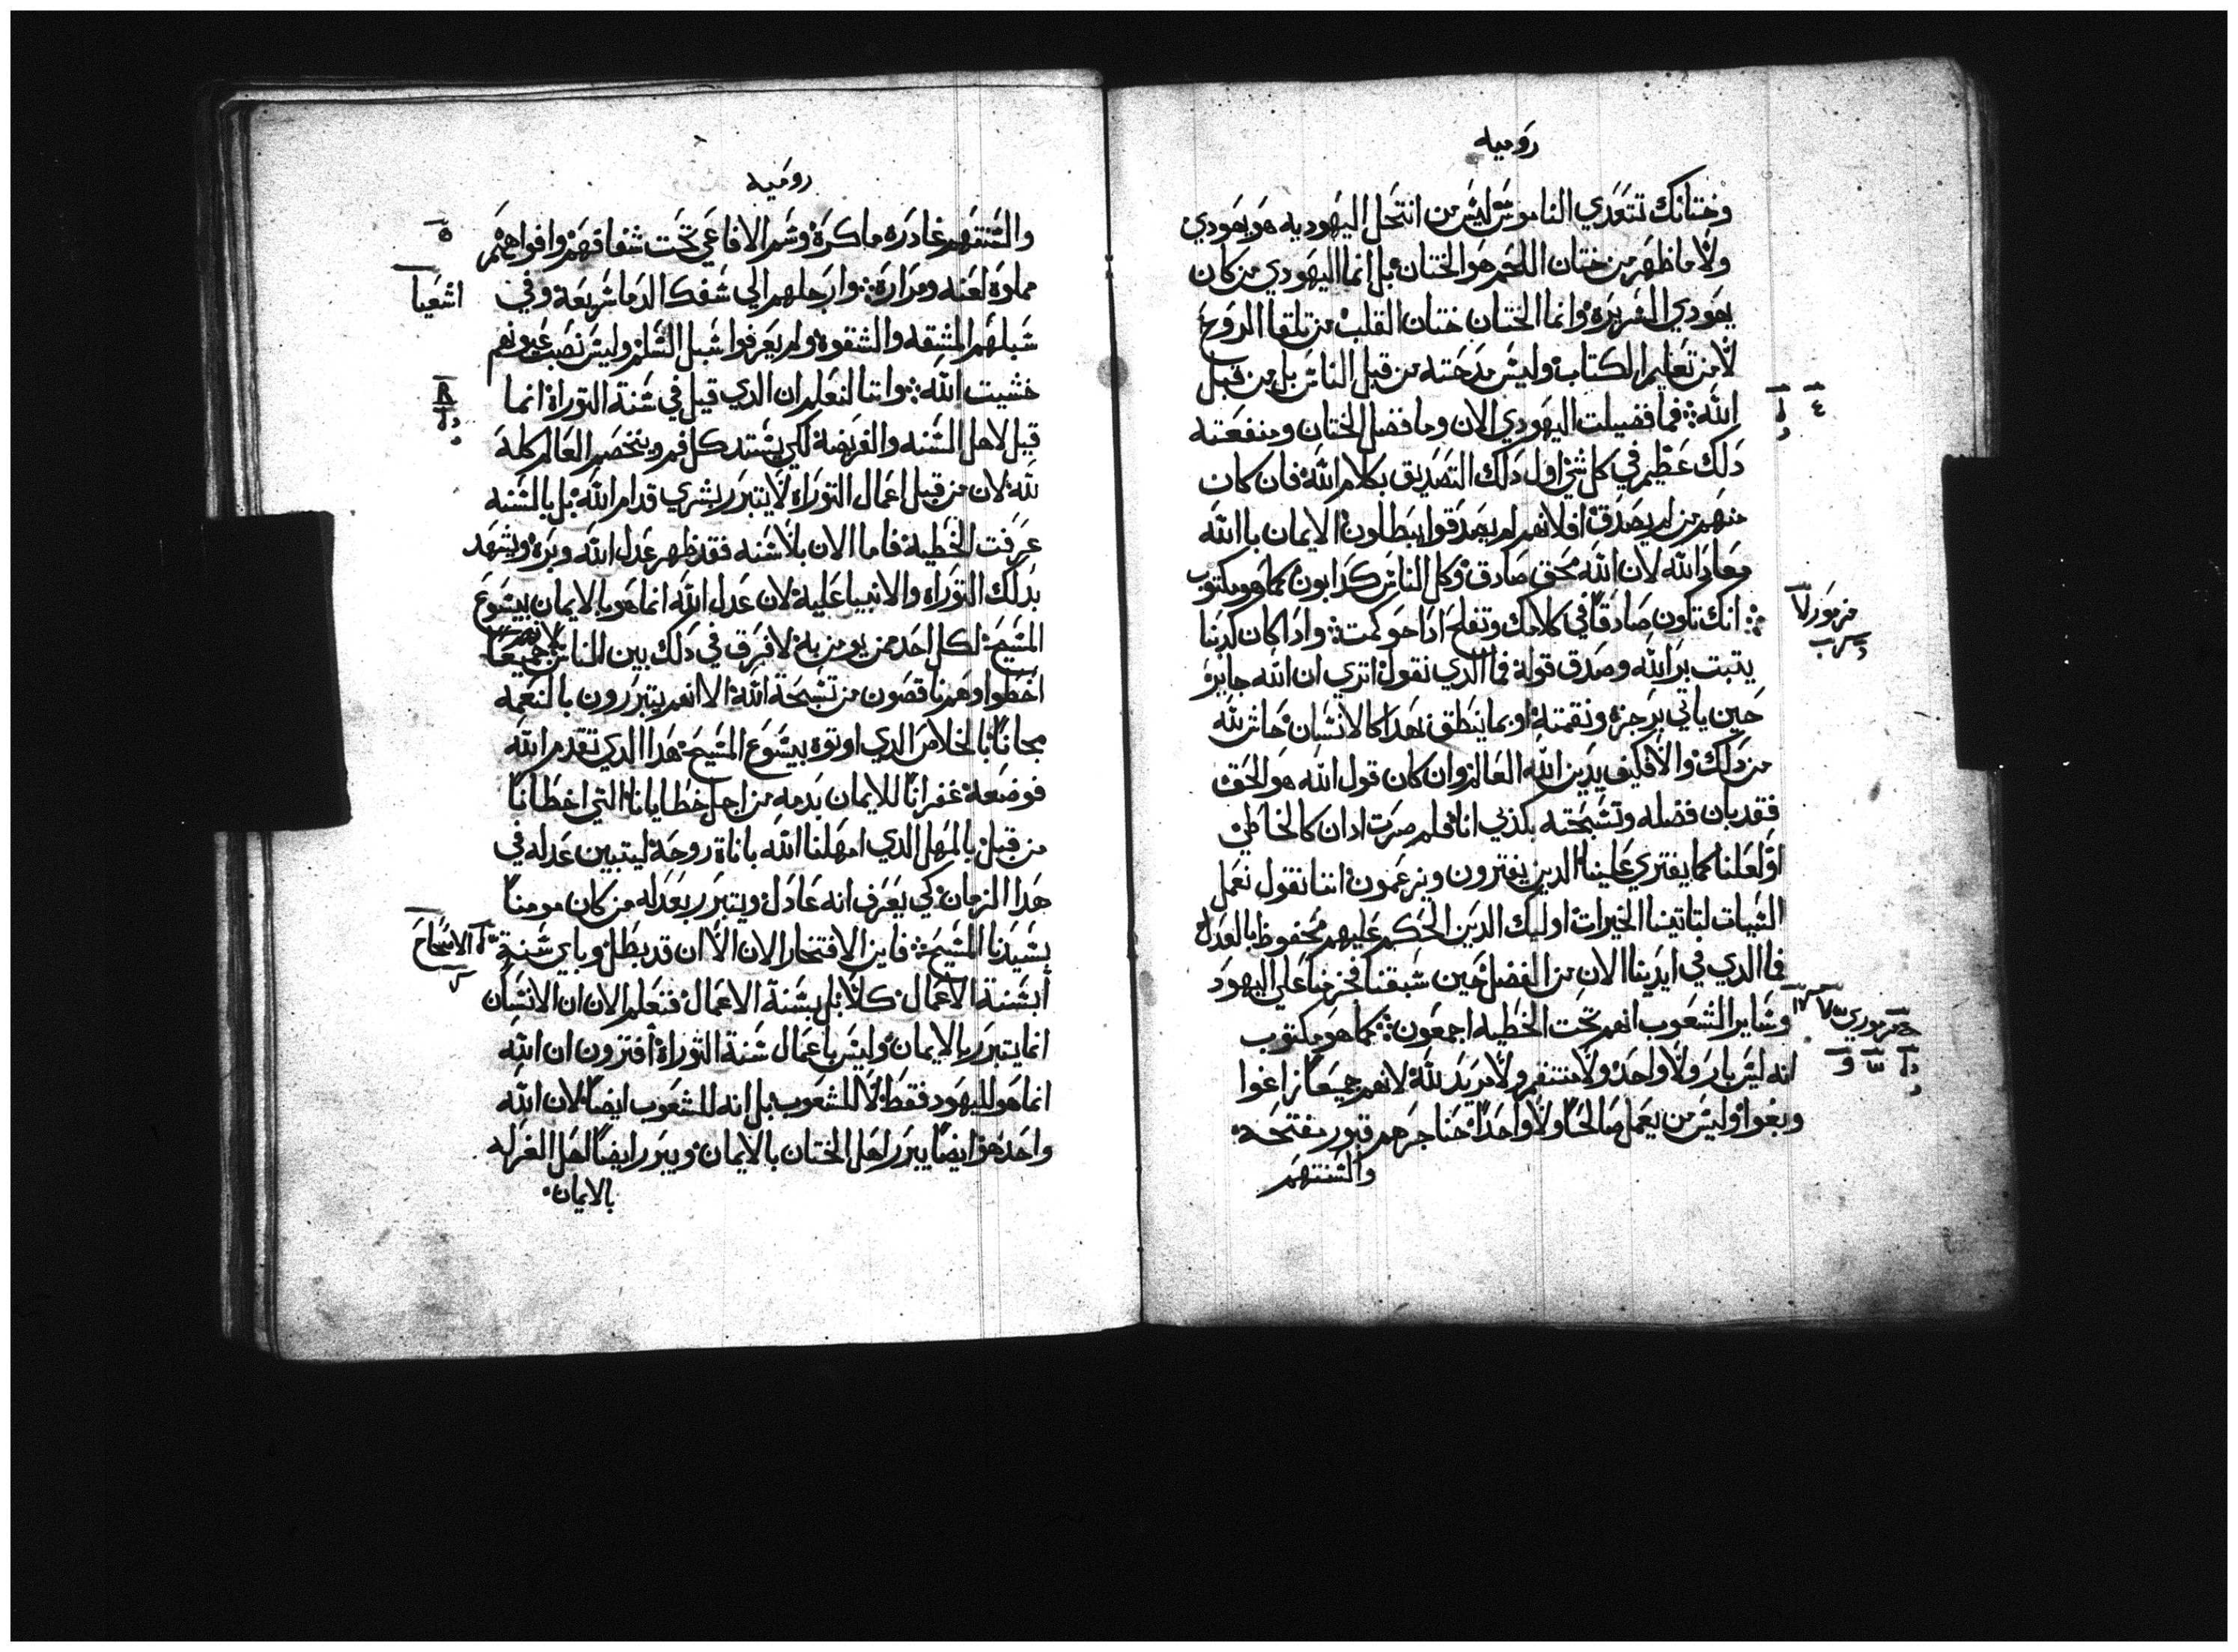 روميه
وختانك تتعدي الناموس ليس من انتحل اليهوديه هو يهودي
ولا ما ظهر من ختان اللحم هو الختان بل انما اليهودي من كان
يهودي السريرة وانما الختان ختان القلب من تلقا الروح
لا من تعليم الكتاب وليس مدحته من قبل الناس بل من قبل
الله فما فضيلت اليهودي الان وما فضل الختان ومنفعته
٤
دلك عظيم في كل شي اول دلك التصديق بكلام الله فان كان
منهم من لم يصدق افلانهم لم يصدقوا يبطلون الايمان باالله
معاد الله لان الله محق صادق وكل الناس كدابون كما هو مكتوب
مزمور
انك تكون صادقا في كلامك وتفلح ادا حوكمت وادا كان كدبنا
يتبت بر الله وصدق قوله فما الدي نقول اتري ان الله جايز
حين ياتي برجزه ونقمته او بما ينطق بهدا كالانسان حاش لله
من دلك والا فكيف يدين الله العالم وان كان قول الله هو الحق
فقد بان فضله وتسبحته بكدبي انا فلم صرت ادان كالخاطي
او لعلنا كما يفتري علينا الدين يفترون ويزعمون اننا نقول نعمل
السيات لتاتينا الخيرات اوليك الدين الحكم عليهم محفوظ بالعدل
فما الدي في ايدينا الان من الفضل حين سبقنا فخرمنا علي اليهود
وساير الشعوب انهم تحت الخطيه اجمعون كما هو مكتوب
انه ليس بار ولا واحد ولا متفهم ولا مريد لله لانهم جميعا زاغوا
وبغوا وليس من يعمل صالحا ولا واحدا حناجرهم قبور مفتحه
والسنتهم
روميه
والسنتهم غادره ماكرة وسم الافاعي تحت شفافهم وافواههم
٥
مملوة لعنه ومرارة وارجلهم الي سفك الدما سريعة وفي
اشعيا
سبلهم المشقه والشقوة ولم يعرفوا سبل السلم وليس نصب عيونهم
خشيت الله واننا لنعلم ان الدي قيل في سنة التوراة انما
قيل لاهل السنه والفريضة لكي يستد كل فم ويتخصم العالم كله
لله لان من قبل اعمال التوراة لا يتبرر بشري قدام الله بل بالسنه
عرفت الخطية فاما الان بلا سنه فقد ظهر عدل الله وبره ويشهد
بدلك التوراه والانبيا علية لان عدل الله انما هو بالايمان بيسوع
المسيح لكل احد ممن يومن به لا فرق في دلك بين الناس لانهم جميعا
اخطوا وهم ناقصون من تسبحة الله الا انهم يتبررون بالنعمه
مجانا بالخلاص الدي اوتوه بيسوع المسيح هدا الدي تقدم الله
فوضعه غفرانا للايمان بدمه من اجل خطايانا التي اخطانا
من قبل بالمهل الدي امهلنا الله باناة روحة ليتبين عدله في
هدا الزمان كي يعرف انه عادل ويتبرر بعدله من كان مومنا
بسيدنا المسيح فاين الافتخار الان الا ان قد بطل وباي سنة
الاصحاح
ابسنة الاعمال كلا بل بسنة الاعمال فتعلم الان ان الانسان
انما يتبرر بالايمان وليس باعمال سنة التوراة افترون ان الله
انما هو لليهود فقط لا للشعوب بل انه للشعوب ايضا لان الله
واحد هو ايضا يبرر اهل الختان بالايمان ويبرر ايضا اهل الغرله
بالايمان